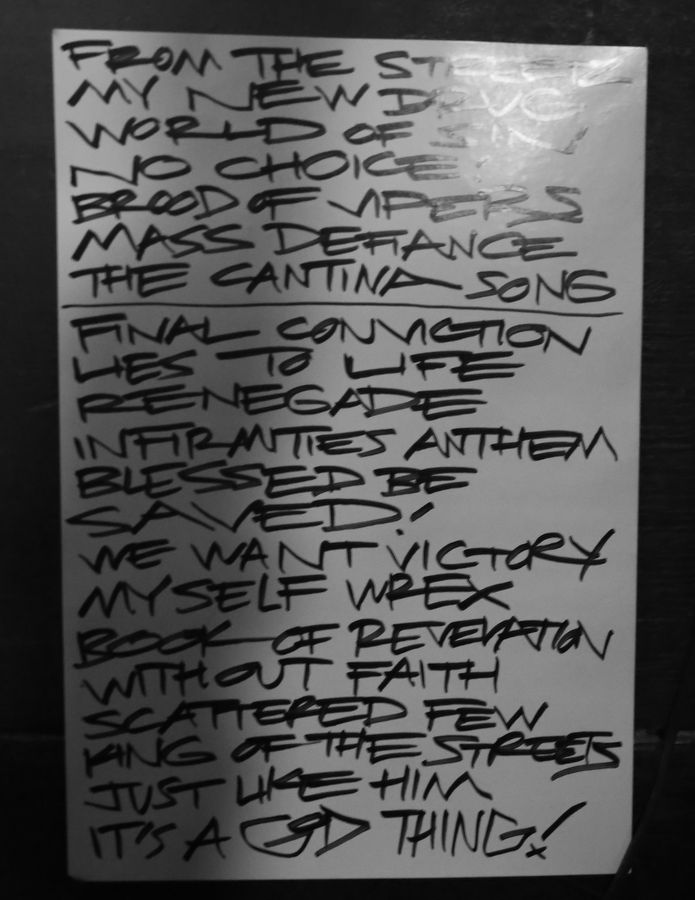 FROM THE STREETS
MY NEW DRUG
WORLD OF SIN
NO CHOICE
BROOD OF VIPERS
MASS DEFIANCE
THE CANTINA SONG
FINAL CONVICTION
LIES TO LIFE
RENEGADE
INFIRMITIES ANTHEM
BLESSED BE
SAVED!
WE WANT VICTORY
MYSELF WREX
BOOK OF REVEVATION
WITHOUT FAITH
SCATTERED FEW
KING OF THE STREETS
JUST LIKE HIM
IT'S A GOD THING!